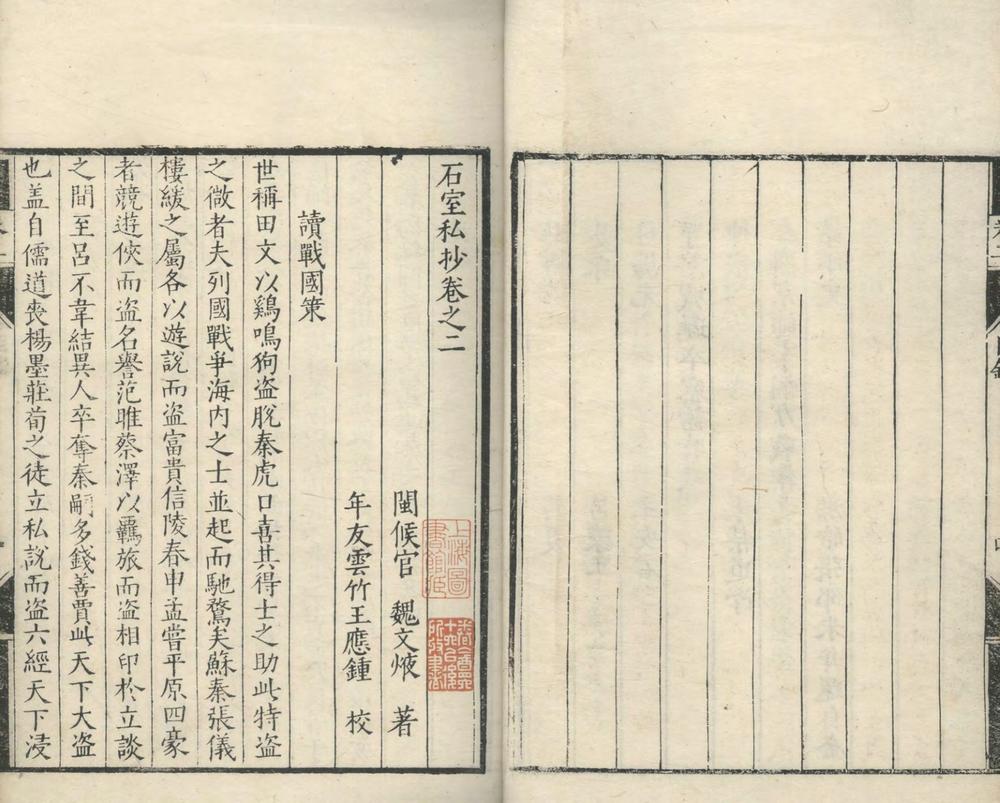 石室私抄卷之二
閩候官 魏文焲 著
年友雲竹王應鍾 校
讀戰國策
世稱田文以鷄鳴狗盗脫秦虎口喜其得士之助此特盗
之微者夫列國戰爭海内之士並起而馳騖矣蘇秦張儀
樓緩之屬各以遊說而盗富貴信陵春申孟嘗平原四豪
者競遊俠而盗名譽范雎蔡澤以羈旅而盗相印於立談
之間至呂不韋結異人卒奪秦嗣多錢善賈此天下大盗
也盖自儒道喪楊墨莊荀之徒立私說而盗六經天下浸
上海圖書館藏